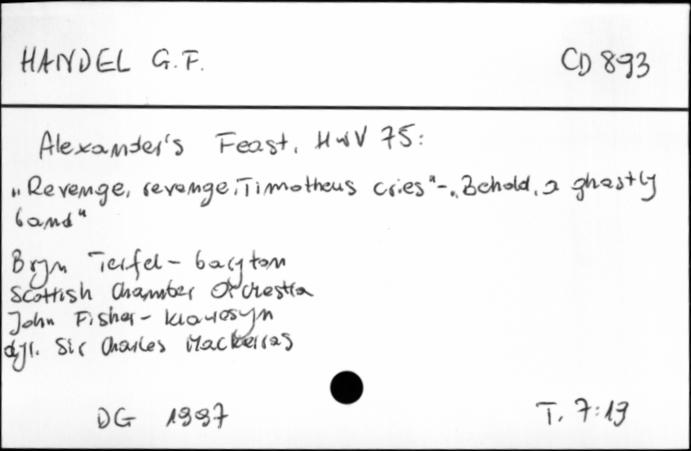 HANDEL G.F. CD 893
Alexander's Feast, HWV 75:
„Revenge, revenge, Timotheus cries"-„Behold, a ghastly
band"
Bryn Terfel - baryton
Scottish Chamber Orchestra
John Fisher - klawesyn
dyr. Sir Charles Mackerras
DG 1997 T. 7:19